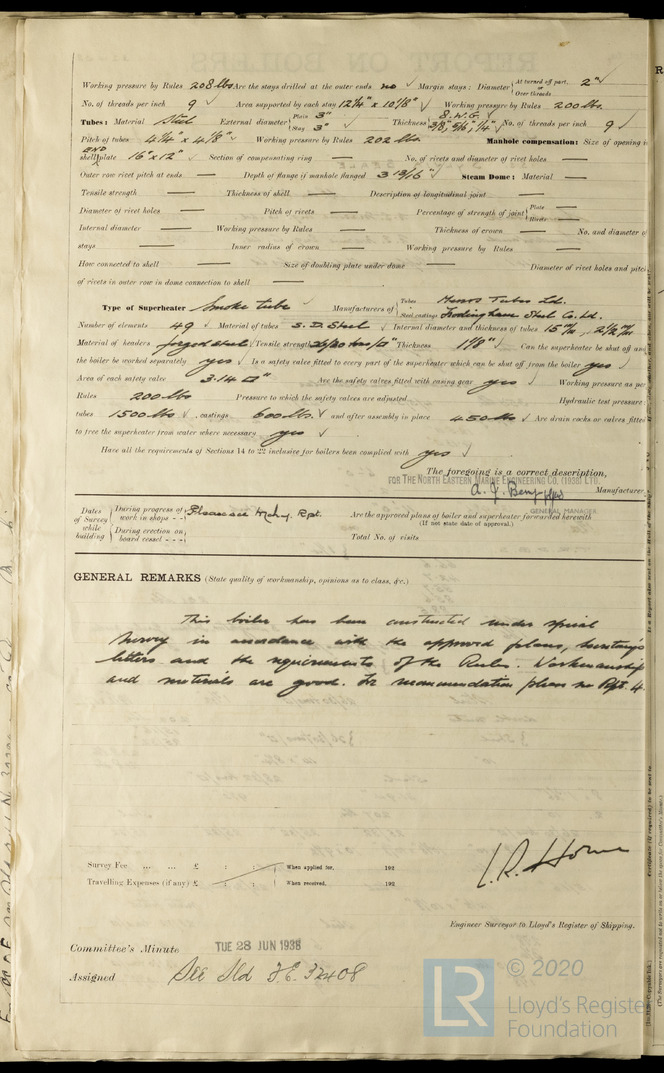 Working pressure by Rules 208 lbs Are the stays drilled at the outer ends no Margin stays: Diameter { At turned off part, 2" or Over threads
No. of threads per inch 9 Area supported by each stay 12¼" x 10⅛" Working pressure by Rules 200 lbs.
Tubes: Material Steel External diameter { Plain 3" Stay 3" Thickness { 8.W.G. 3/8", 5/16", ¼" No. of threads per inch 9
Pitch of tubes 4¼" x 4⅛" Working pressure by Rules 202 lbs Manhole compensation: Size of opening i
END
shell plate 16" x 12" Section of compensating ring — No. of rivets and diameter of rivet holes —
Outer row rivet pitch at ends — Depth of flange if manhole flanged 3 13/16" Steam Dome: Material —
Tensile strength — Thickness of shell — Description of longitudinal joint —
Diameter of rivet holes — Pitch of rivets — Percentage of strength of joint { Plate — Rivets —
Internal diameter — Working pressure by Rules — Thickness of crown — No. and diameter o
stays — Inner radius of crown — Working pressure by Rules —
How connected to shell — Size of doubling plate under dome — Diameter of rivet holes and pitc
of rivets in outer row in dome connection to shell —
Type of Superheater Smoke tube Manufacturers of { Tubes Tubes Ltd. Steel castings Steel Co. Ltd.
Number of elements 49 Material of tubes S. D. Steel Internal diameter and thickness of tubes 15 m/m, 2½ m/m
Material of headers forged steel Tensile strength 26/30 tons/□" Thickness 1⅛" Can the superheater be shut off and
the boiler be worked separately yes Is a safety valve fitted to every part of the superheater which can be shut off from the boiler yes
Area of each safety valve 3.14 □" Are the safety valves fitted with easing gear yes Working pressure as per
Rules 200 lbs Pressure to which the safety valves are adjusted Hydraulic test pressure:
tubes 1500 lbs, castings 600 lbs. and after assembly in place 450 lbs Are drain cocks or valves fitted
to free the superheater from water where necessary yes
Have all the requirements of Sections 14 to 22 inclusive for boilers been complied with yes
The foregoing is a correct description,
FOR THE NORTH EASTERN MARINE ENGINEERING CO. (1938) LTD.
Manufacturer
GENERAL MANAGER.
Dates of Survey while building { During progress of work in shops - - Please see Mchy. Rpt. Are the approved plans of boiler and superheater forwarded herewith
(If not state date of approval.)
During erection on board vessel - - - Total No. of visits
GENERAL REMARKS (State quality of workmanship, opinions as to class, &c.)
This boiler has been constructed under special
survey in accordance with the approved plans, Secretary's
letters and the requirements of the Rules. Workmanship
and materials are good. For recommendation please see Rpt. 4.
Survey Fee ... ... £ : : When applied for, 192
Travelling Expenses (if any) £ : : When received, 192
Engineer Surveyor to Lloyd's Register of Shipping.
Committee's Minute TUE 28 JUN 1938
Assigned See Sld F.E. 32408
© 2020
LR Lloyd's Registe
Foundation